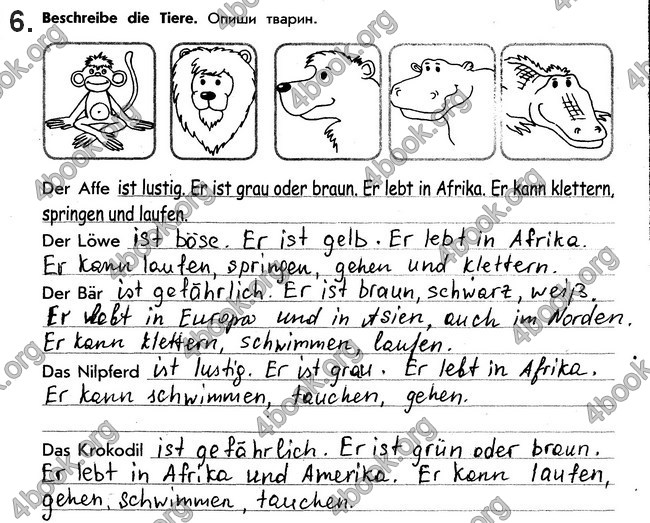 6. Beschreibe die Tiere. Опиши тварин.
Der Affe ist lustig. Er ist grau oder braun. Er lebt in Afrika. Er kann klettern,
springen und laufen.
Der Löwe ist böse. Er ist gelb. Er lebt in Afrika.
Er kann laufen, springen, gehen und klettern.
Der Bär ist gefährlich. Er ist braun, schwarz, weiß.
Er lebt in Europa und in Asien, auch im Norden.
Er kann klettern, schwimmen, laufen.
Das Nilpferd ist lustig. Er ist grau. Er lebt in Afrika.
Er kann schwimmen, tauchen, gehen.
Das Krokodil ist gefährlich. Er ist grün oder braun.
Er lebt in Afrika und Amerika. Er kann laufen,
gehen, schwimmen, tauchen.
4book.org